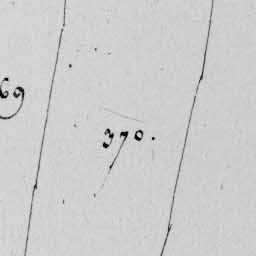 69
370.